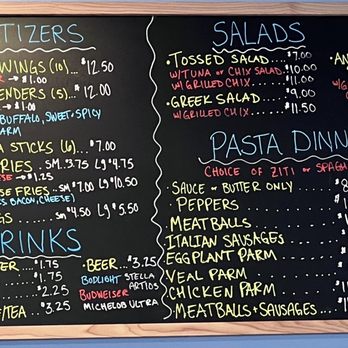 TIZERS
WINGS (10)... $12.50
→ $1.00
ENDERS (5)... $12.00
... → $1.00
BUFFALO, SWEET + SPICY
ARM
A STICKS (6) ... $7.00
FRIES SM. $3.75 Lg $4.75
→ $1.25
SE FRIES · SM $7.00 Lg $10.50
BACON, CHEESE)
GS SM $4.50 Lg $5.50
DRINKS
ER ... $1.75
... $1.75
... $2.25
/TEA ... $3.25
· BEER ... $3.25
BUDLIGHT STELLA
ARTIOS
BUDWEISER
MICHELOB ULTRA
SALADS
· TOSSED SALAD ... $7.00
W/TUNA OR CHIX SALAD $10.00
W/GRILLED CHIX ... $11.00
· GREEK SALAD ... $9.00
W/GRILLED CHIX ... $11.50
· AN
W
PASTA DINN
CHOICE OF ZITI OR SPAGH
· SAUCE OR BUTTER ONLY ... $8
PEPPERS ... $
MEATBALLS ... $
ITALIAN SAUSAGES ... $
EGGPLANT PARM ... $
VEAL PARM ... $
CHICKEN PARM ... $
MEATBALLS + SAUSAGES ... $1